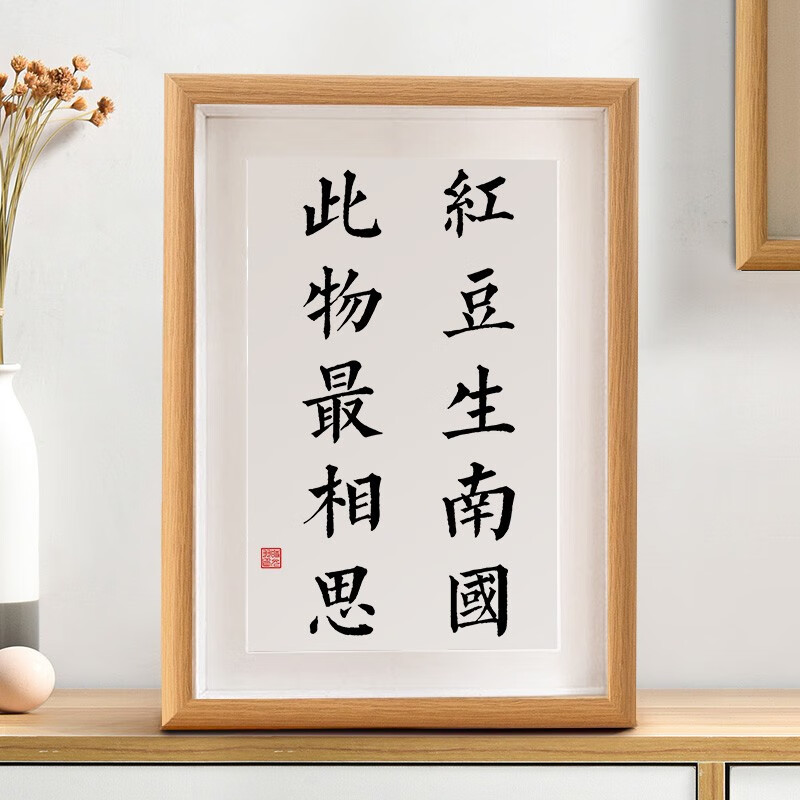 紅豆生南國
此物最相思